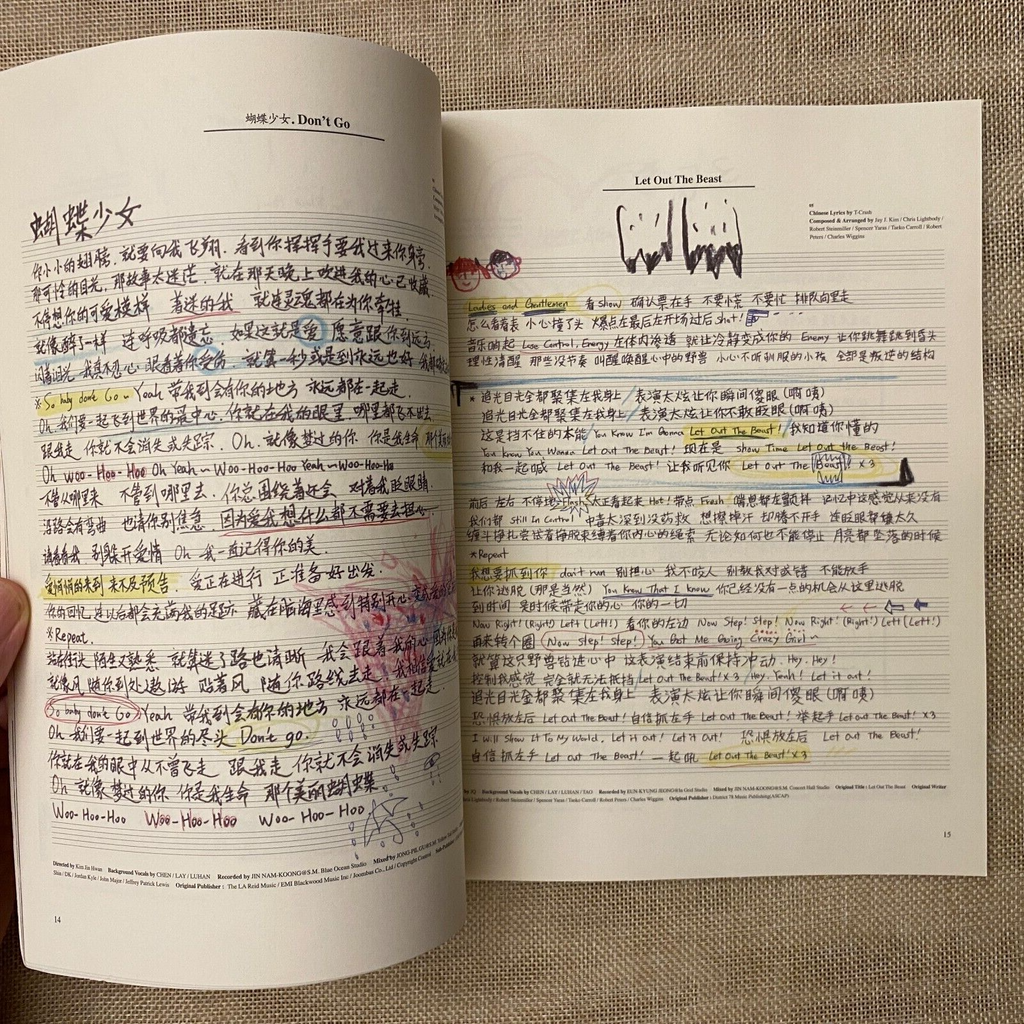 蝴蝶少女. Don't Go
蝴蝶少女
你小小的翅膀. 就要向我飞翔. 看到你挥挥手要我过来你身旁.
那可怜的目光, 那故事太迷茫. 就在那天晚上吹进我的心已收藏
不停想你的可爱模样 着迷的我 就连灵魂都在为你牵绊
就像醉了一样 连呼吸都遗忘 如果这就是爱 愿意跟你到远方.
就算一秒或是到永远也好
※So baby don't Go~Yeah 带我到会有你的地方 永远都在一起走.
Oh 我们要一起飞到世界的最中心 你就在我的眼里 哪里都飞不出去
跟我走 你就不会消失或失踪. Oh. 就像梦过的你 你是我生命 那个美丽
Oh woo-Hoo-Hoo Oh Yeah~Woo-Hoo-Hoo Yeah~Woo-Hoo-Hoo
不管从哪里来 不管到哪里去. 你总围绕着还会 对着我眨眼睛.
沿路会有弯曲 也请你别焦急 因为爱我想什么都不需要去担心.
别躲开爱情 Oh 我一直记得你的美.
爱悄悄的来到 来不及预告. 爱正在进行 正准备好出发.
你的回忆 是以后都会充满我的足迹 藏在脑海里感到特别开心
※Repeat.
站在街头 陌生又熟悉 就算迷了路也清晰 我会跟着我的心
就像风 随你到处遨游 跟着风 随你路线去走
So baby don't Go Yeah 带我到会有你的地方 永远都在一起走.
Oh 我们要一起到世界的尽头 Don't go.
你就在我的眼中从不曾飞走 跟我走 你就不会消失或失踪
Oh 就像梦过的你 你是我生命 那个美丽蝴蝶
Woo-Hoo-Hoo Woo-Hoo-Hoo Woo-Hoo-Hoo
Directed by Kim Jin Hwan Background Vocals by CHEN / LAY / LUHAN Recorded by JIN NAM-KOONG@S.M. Blue Ocean Studio Mixed by JONG-PIL GU@S.M.
Shin / DK / Jordan Kyle / John Major / Jeffrey Patrick Lewis Original Publisher : The LA Reid Music / EMI Blackwood Music Inc / Joombas Co., Ltd / Copyright Control
14
Let Out The Beast
Chinese Lyrics by T-Crash
Composed & Arranged by Jay J. Kim / Chris Lightbody /
Robert Steinmiller / Spencer Yaras / Tasko Carroll / Robert
Peters / Charles Wiggins
Ladies and Gentlemen 看show 确认票在手 不要慌 不要忙 排队向里走
怎么看看表 小心撞了头 爆点左最后左开场过后 shot!
音乐响起 Lose Control, Energy 在体内渗透 就让冷静变成你的 Enemy 让你跳舞跳到昏头
理性清醒 那些没节奏 叫醒唤醒心中的野兽 小心不听驯服的小孩 全部是叛逆的结构
* 追光目光全都聚集在我身上 / 表演太炫让你瞬间傻眼 (啊啧)
追光目光全都聚集在我身上 / 表演太炫让你不敢眨眼 (啊啧)
这是挡不住的本能 / You Know I'm Gonna Let Out The Beast! / 我知道你懂的
You Know You Wanna Let Out The Beast! 现在是 show Time Let Out the Beast!
和我一起喊 Let Out The Beast! 让我听见你 Let Out The Beast × 3
前后 左右 不停地 Flash 太正看起来 Hot! 带点 Fresh 喘息都在颤抖 记忆中这感觉从来没有
我们都 Still In Control 中毒太深到没药救 想擦掉汗 却腾不开手 连眨眼都嫌太久
缠斗挣扎尝试着挣脱束缚着你内心的绳索 无论如何也不能停止 月亮都坠落的时候
*Repeat
我想要抓到你 don't run 别担心 我不吃人 别教我对或错 不能放手
让你逃脱 (那是当然) You Know That I know 你已经没有一点的机会从这里逃脱
到时间 实时候带走你的心 你的一切
Now Right! (Right!) Left (Left!) 看你的左边 Now Step! Step! Now Right! (Right!) Left (Left!)
再来转个圈 (Now Step! Step!) You Got Me Going Crazy Girl~
就算这只野兽钻进心中 这表演结束前保持冲动. Hey. Hey!
控制我感觉 完全就无法抵挡 Let Out The Beast! × 3 / Hey. Yeah! Let it out!
追光目光全都聚集在我身上 表演太炫让你瞬间傻眼 (啊啧)
恐惧放左后 Let Out The Beast! 自信抓左手 Let Out The Beast! 举起手 Let out The Beast! × 3
I will Show It To My World, Let it out! Let it Out! 恐惧放左后 Let Out The Beast!
自信抓左手 Let Out The Beast! 一起吼 Let Out The Beast! × 3
Background Vocals by CHEN / LAY / LUHAN / TAO Recorded by EUN KYUNG JEONG@In Grid Studio Mixed by JIN NAM-KOONG@S.M. Concert Hall Studio Original Title : Let Out The Beast Original Writer
Lightbody / Robert Steinmiller / Spencer Yaras / Tasko Carroll / Robert Peters / Charles Wiggins Original Publisher : District 78 Music Publishing(ASCAP)
15